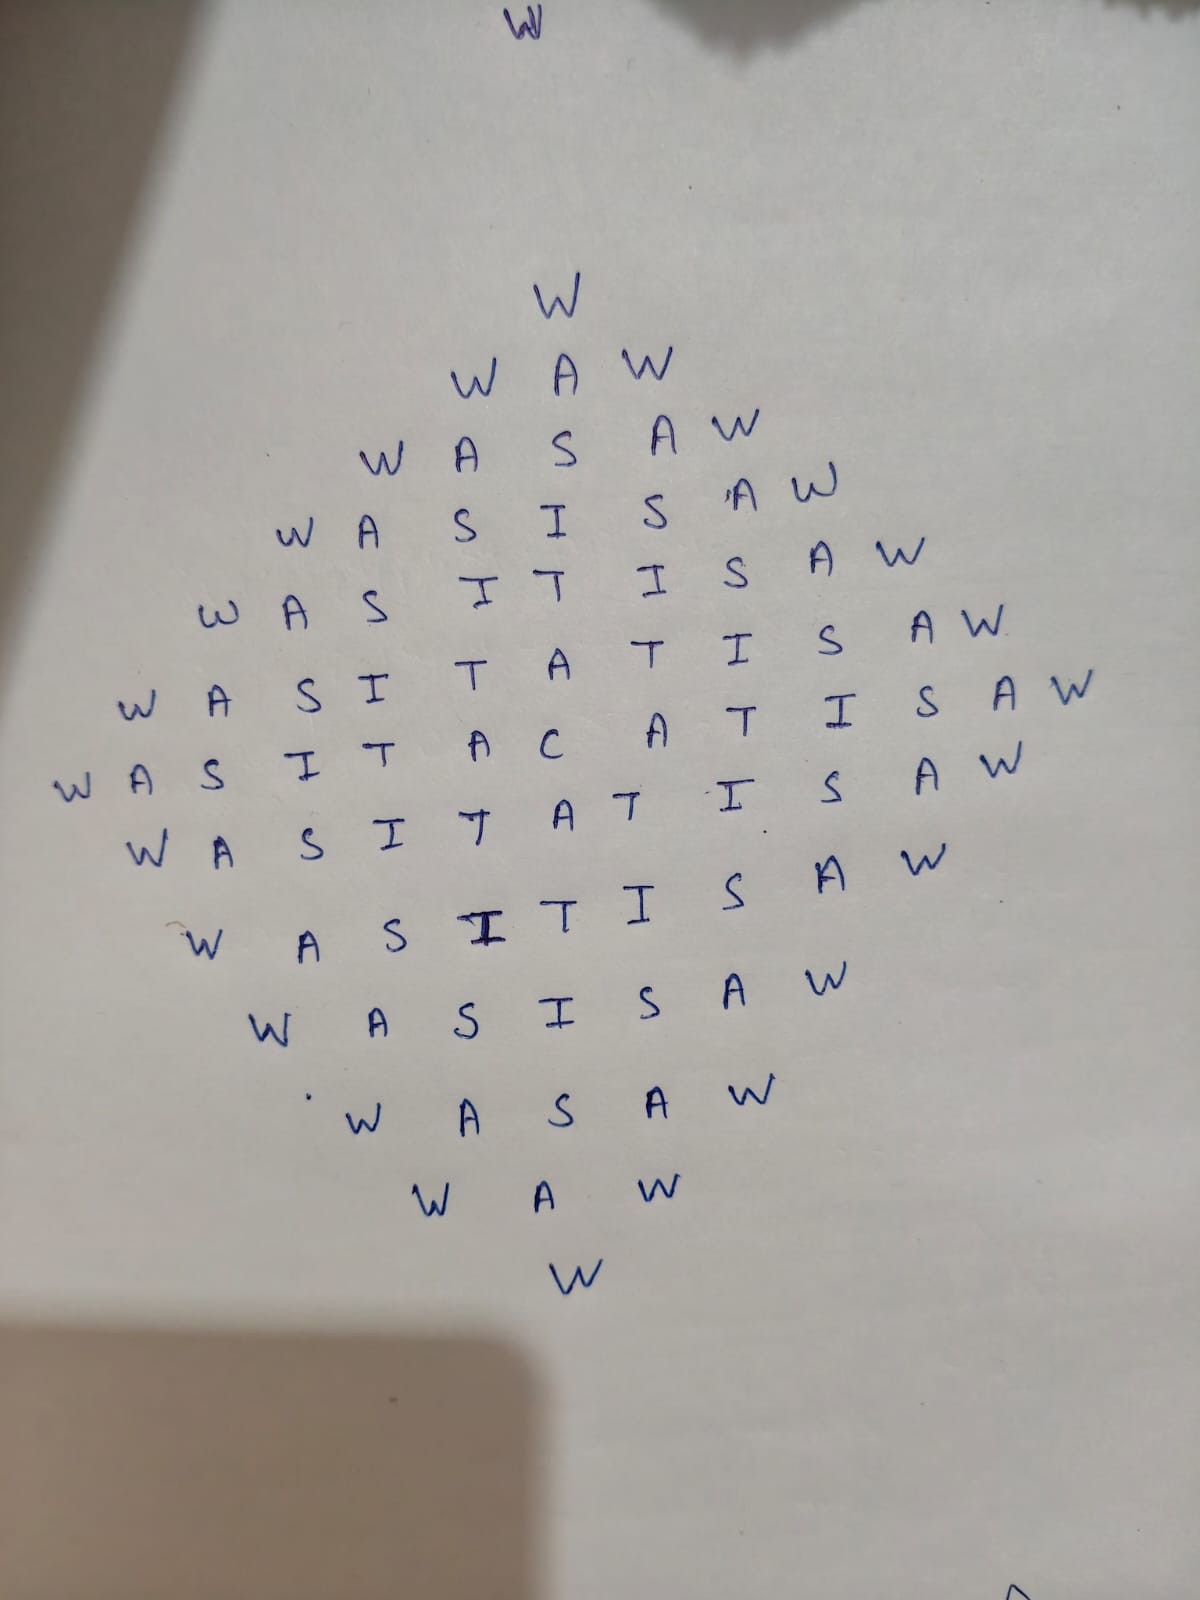 W
W
W A W
W A S A W
W A S I S A W
W A S I T I S A W
W A S I T A T I S A W
W A S I T A C A T I S A W
W A S I T A T I S A W
W A S I T I S A W
W A S I S A W
W A S A W
W A W
W